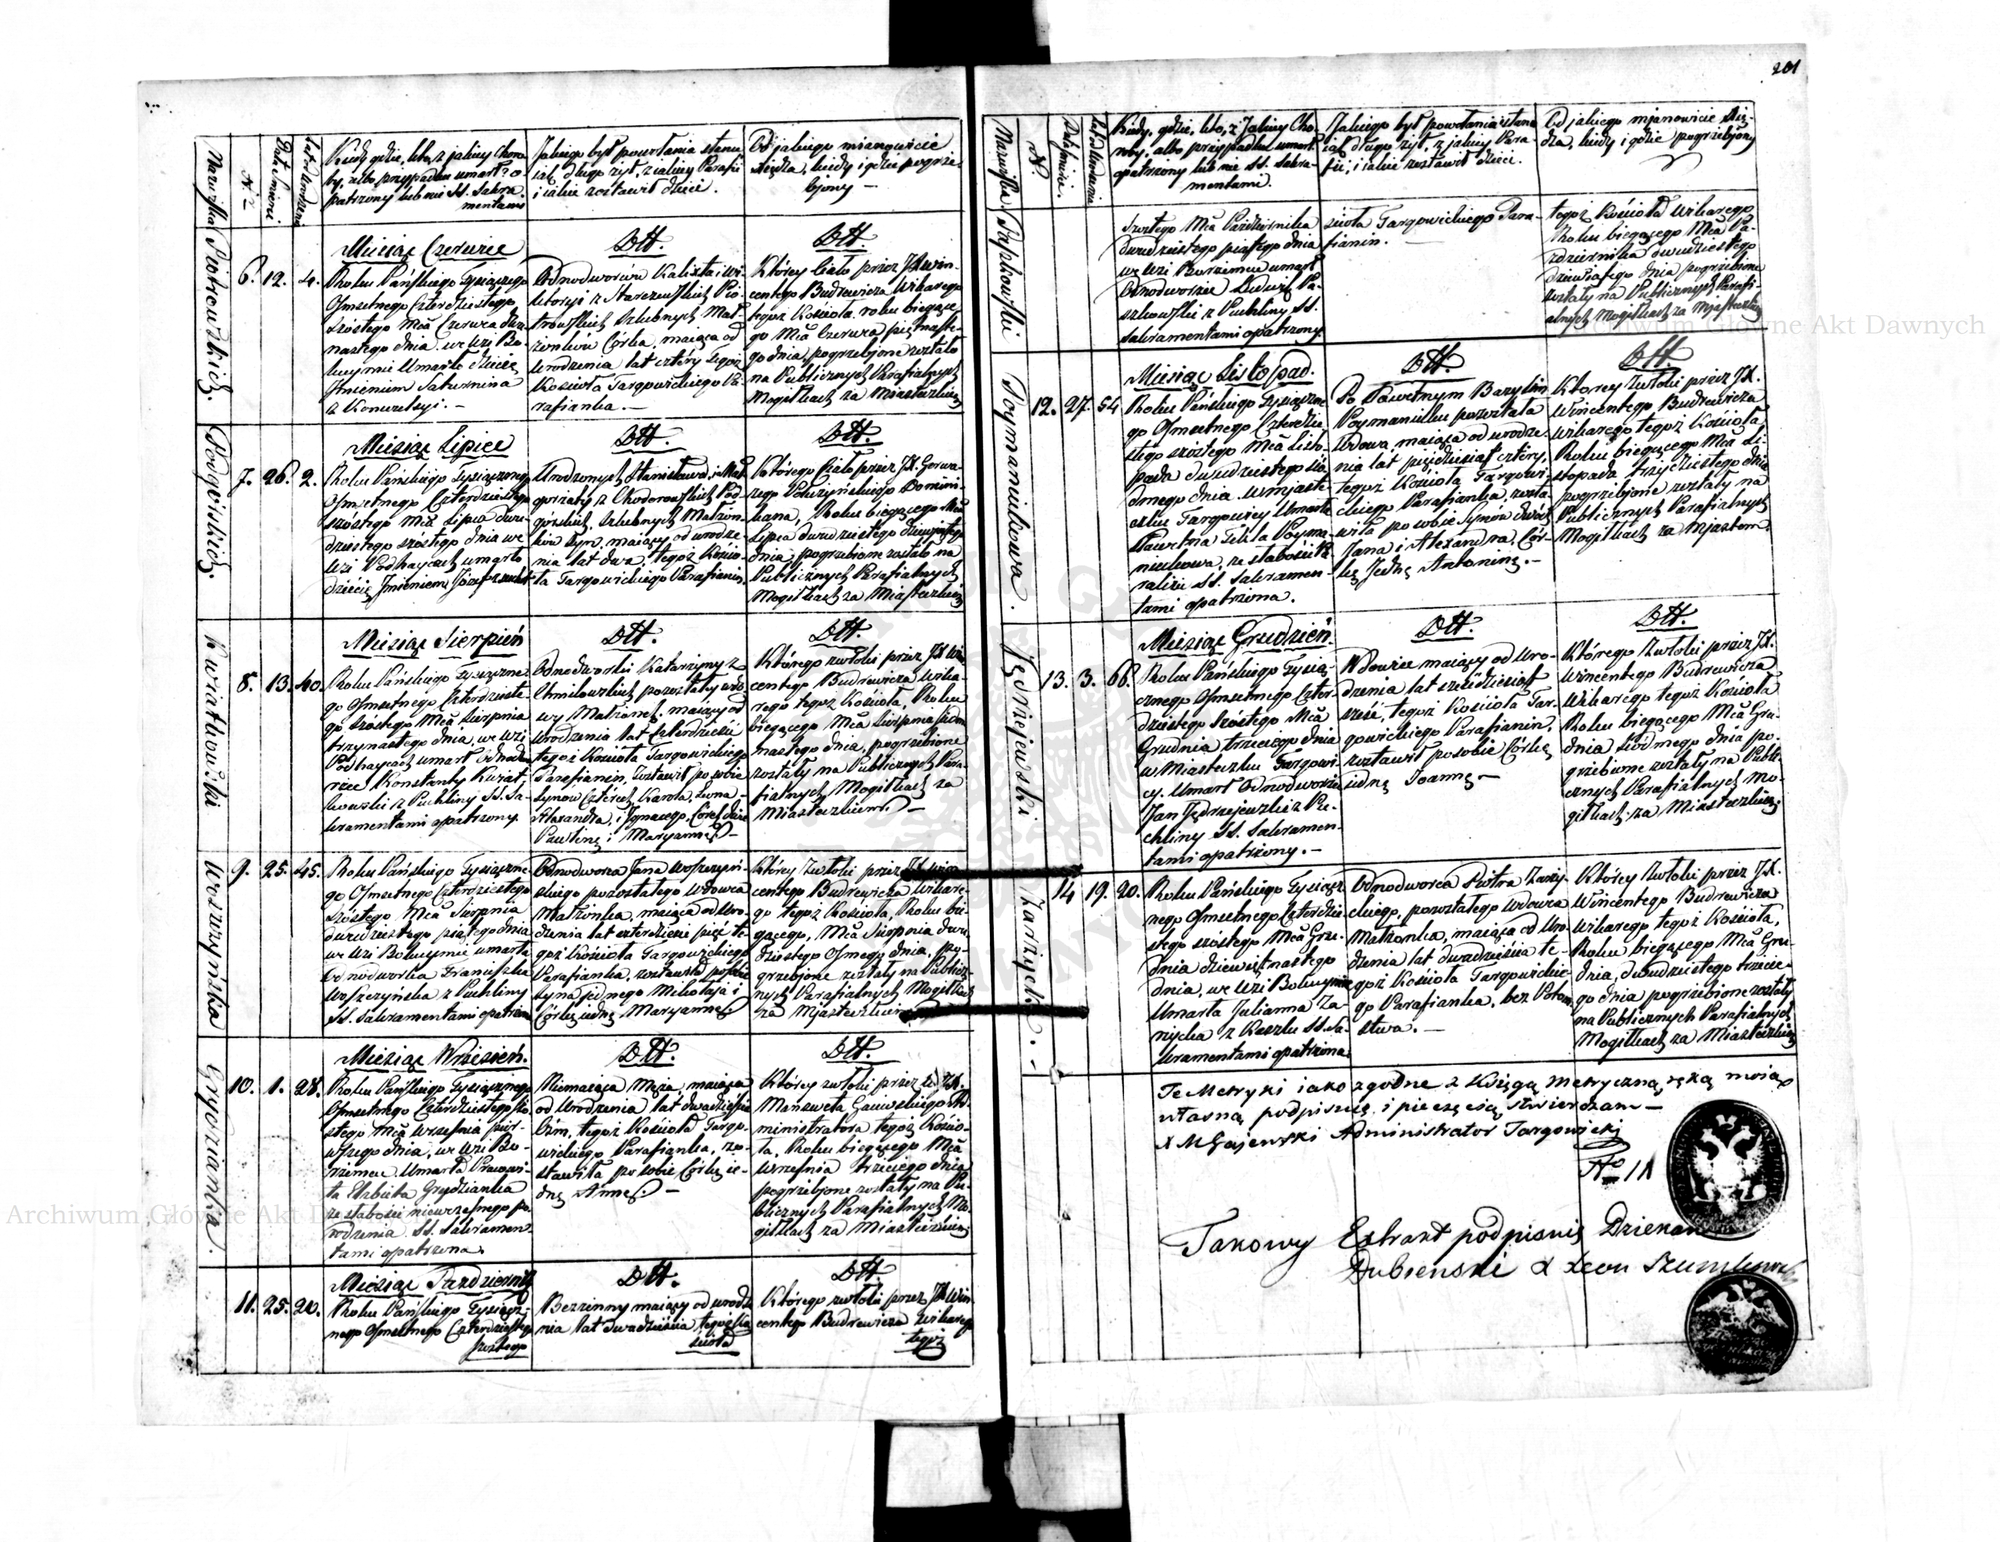 201
Nazwiska
Nr
Data Śmierci
Lat od Urodzenia
Kiedy, gdzie, kto, z jakiey Choro-
by, albo przypadku umarł? o-
patrzony lub nie SS. Sakra-
mentami
Jakiego był powołania stanu
jak długo żył, z jakiey Parafii
i jakie zostawił dzieci.
Od jakiego mianowicie
Xiędza, kiedy i gdzie pogrze-
biony —
Piotrowskich.
6. 12. 4.
Miesiąc Czerwiec
Roku Pańskiego Tysiącznego
Ośmsetnego Czterdziestego
szóstego Mca Czerwca dwu-
nastego dnia, we Wsi Bo-
kuymie Umarło dziecię
Imieniem Saturnina
z Konwulsyi. —
Dtt.
Odnodworców Kalixta i Wi-
ktoryi z Starczewskich Pio-
trowskich Szlubnych Mał-
żonków Córka, maiąca od
Urodzenia lat cztéry, tegoż
Kościoła Targowickiego Pa-
rafianka. —
Dtt.
Którey Ciało przez JX. Win-
centego Budrewicza Wikarego
tegoż Kościoła, roku bieżące-
go Mca Czerwca piętnaste-
go dnia, pogrzebione zostało
na Publicznych Parafialnych
Mogiłkach za Miasteczkiem
Podgórskich.
7. 26. 2.
Miesiąc Lipiec
Roku Pańskiego Tysiącznego
Ośmsetnego Czterdziestego
szóstego Mca Lipca dwu-
dziestego szóstego dnia we
Wsi Podhaycach umarło
dziecię Imieniem Józef
Dtt.
Urodzonych Stanisława i Mał-
gorzaty z Chodorowskich Pod-
górskich, Szlubnych Małżon-
ków Syn, maiący od urodze-
nia lat dwa, tegoż Kościo-
ła Targowickiego Parafianin,
Dtt.
Którego Ciało przez JX. Gerwa-
zego Domini-
kana, Roku bieżącego Mca
Lipca dwudziestego dziewiątego
dnia, pogrzebione zostało na
Publicznych Parafialnych
Mogiłkach za Miasteczkiem
Kwiatkowski
8. 13. 40.
Miesiąc Sierpień
Roku Pańskiego Tysiączne-
go Ośmsetnego Czterdzieste-
go szóstego Mca Sierpnia
trzynastego dnia, we Wsi
Podhaycach umarł Odnodwo-
rzec Konstanty Kwiat-
kowski z Puchliny SS. Sa-
kramentami opatrzony
Dtt.
Odnodworki Katarzyny z
Chmilowskich pozostałey wdo-
wy Małżonek, maiący od
Urodzenia lat Czterdzieści
tegoż Kościoła Targowickiego
Parafianin, Zostawił po sobie
Synów Czterech, Karola, Leona
Alexandra, i Ignacego, Córek dwie
Paulinę i Maryannę. —
Dtt.
Którego zwłoki przez JX. Win-
centego Budrewicza Wika-
rego tegoż Kościoła, Roku
bieżącego Mca Sierpnia siedm-
nastego dnia, pogrzebione
zostały na Publicznych Para-
fialnych Mogiłkach za
Miasteczkiem. —
Woszczyńska
9. 25. 45.
Roku Pańskiego Tysiączne-
go Ośmsetnego Czterdziestego
Szóstego Mca Sierpnia
dwudziestego piątego dnia
we Wsi Bokuymie umarła
Odnodworka Franciszka
Woszczyńska z Puchliny
SS. Sakramentami opatrzona
Odnodworca Jana Woszczyń-
skiego pozostałego Wdowca
Małżonka, maiąca od Uro-
dzenia lat czterdzieści pięć te-
goż Kościoła Targowickiego
Parafianka, zostawiła po sobie
Syna jednego Mikołaja i
Córkę iedną Maryannę —
Którey Zwłoki przez JX. Win-
centego Budrewicza Wikare-
go tegoż Kościoła, Roku bie-
żącego, Mca Sierpnia dwu-
dziestego Osmego dnia, po-
grzebione zostały na Publicz-
nych Parafialnych Mogiłkach
za Miasteczkiem
Grydzianka.
10. 1. 28.
Miesiąc Wrzesień.
Roku Pańskiego Tysiącznego
Ośmsetnego Czterdziestego szó-
stego Mca Września pier-
wszego dnia, we Wsi Bo-
rzemcu Umarła
Elżbieta Grydzianka
ze słabości niewczesnego po-
rodzenia SS. Sakramen-
tami opatrzona.
Dtt.
Niemaiąca Męża, maiąca
od Urodzenia lat dwadzieścia
Ośm, tegoż Kościoła Targo-
wickiego Parafianka, zo-
stawiła po sobie Córkę ie-
dnę Annę. —
Dtt.
Którey zwłoki przez W. JX.
Mansweta Gaiewskiego Ad-
ministratora tegoż Kościo-
ła, Roku bieżącego Mca
Września trzeciego dnia
pogrzebione zostały na Pu-
blicznych Parafialnych Mo-
giłkach za Miasteczkiem
11. 25. 20.
Miesiąc Październik
Roku Pańskiego Tysiącz-
nego Ośmsetnego Czterdziestego
szóstego
Dtt.
Bezżenny maiący od urodze-
nia lat dwadzieścia, tegoż Ko-
ścioła
Dtt.
Którego zwłoki przez JX. Win-
centego Budrewicza Wikarego
tegoż
Nazwiska
N.
Data Śmierci.
Lat od Urodzenia
Kiedy, gdzie, kto, z jakiey Cho-
roby, albo przypadku umarł
opatrzony lub nie SS. Sakra-
mentami.
Jakiego był powołania stanu
jak długo żył, z jakiey Para-
fii, i jakie zostawił dzieci.
Od jakiego mianowicie Xię-
dza, kiedy i gdzie pogrzebiony
Paszkowski
Szóstego Mca Października
dwudziestego piątego dnia
we Wsi Borzemcu umarł
Odnodworzec Ludwik Pa-
szkowski z Puchliny SS.
Sakramentami opatrzony
ścioła Targowickiego Para-
fianin.
tegoż Kościoła Wikarego
Roku bieżącego Mca Pa-
ździernika dwudziestego
dziewiątego dnia pogrzebione
zostały na Publicznych Parafi-
alnych Mogiłkach za Miasteczkiem
Poymaniukowa.
12. 27. 54
Miesiąc Listopad.
Roku Pańskiego Tysiączne-
go Ośmsetnego Czterdzie-
stego szóstego Mca Listo-
pada dwudziestego sió-
dmego dnia w Miaste-
czku Targowicy Umarła
Sławetna Tekla Poyma-
niukowa, ze słabości
SS. Sakramen-
tami opatrzona.
Dtt.
Po Sławetnym Bazylim
Poymaniuku pozostała
Wdowa maiąca od urodze-
nia lat pięćdziesiąt cztéry,
tegoż Kościoła Targowi-
ckiego Parafianka, zosta-
wiła po sobie Synów dwóch
Jana i Alexandra, Cór-
kę Jednę Antoninę. —
Dtt.
Którey Zwłoki przez JX.
Wincentego Budrewicza
Wikarego tegoż Kościoła
Roku bieżącego Mca Li-
stopada trzydziestego dnia
pogrzebione zostały na
Publicznych Parafialnych
Mogiłkach za Miastem.
Jędrzejewski
13. 3. 66.
Miesiąc Grudzień.
Roku Pańskiego Tysią-
cznego Ośmsetnego Czter-
dziestego Szóstego Mca
Grudnia trzeciego dnia
w Miasteczku Targowi-
cy, Umarł Odnodworzec
Jan Jędrzejewski z Pu-
chliny SS. Sakramen-
tami opatrzony. —
Dtt.
Wdowiec maiący od Uro-
dzenia lat sześćdziesiąt
sześć, tegoż Kościoła Tar-
gowickiego Parafianin,
zostawił po sobie Córkę
iednę Joannę —
Dtt.
Którego Zwłoki przez JX.
Wincentego Budrewicza
Wikarego tegoż Kościoła
Roku bieżącego Mca Gru-
dnia siódmego dnia po-
grzebione zostały na Publi-
cznych Parafialnych Mo-
giłkach za Miasteczkiem
14 19. 20.
Roku Pańskiego Tysiącz-
nego Ośmsetnego Czterdzie-
stego szóstego Mca Gru-
dnia dziewiętnastego
dnia, we Wsi Bokuymie
Umarła Julianna Za-
rzycka z Kaszlu SS. Sa-
kramentami opatrzona
Odnodworca Piotra Zarzy-
ckiego, pozostałego Wdowca
Małżonka, maiąca od Uro-
dzenia lat dwadzieścia te-
goż Kościoła Targowickie-
go Parafianka, bez Potom-
stwa. —
Którey Zwłoki przez JX.
Wincentego Budrewicza
Wikarego tegoż Kościoła,
Roku bieżącego Mca Gru-
dnia, dwudziestego trzecie-
go dnia pogrzebione zostały
na Publicznych Parafialnych
Mogiłkach za Miasteczkiem
Te Metryki iako zgodne z Księgą Metryczną ręką moią
własną podpisuię i pieczęcią stwierdzam —
X M Gajewski Administrator Targowicki
No 11
Takowy Extrakt podpisuię Dziekan
Dubienski X Leon
Archiwum Główne Akt Dawnych
Archiwum Główne Akt Dawnych